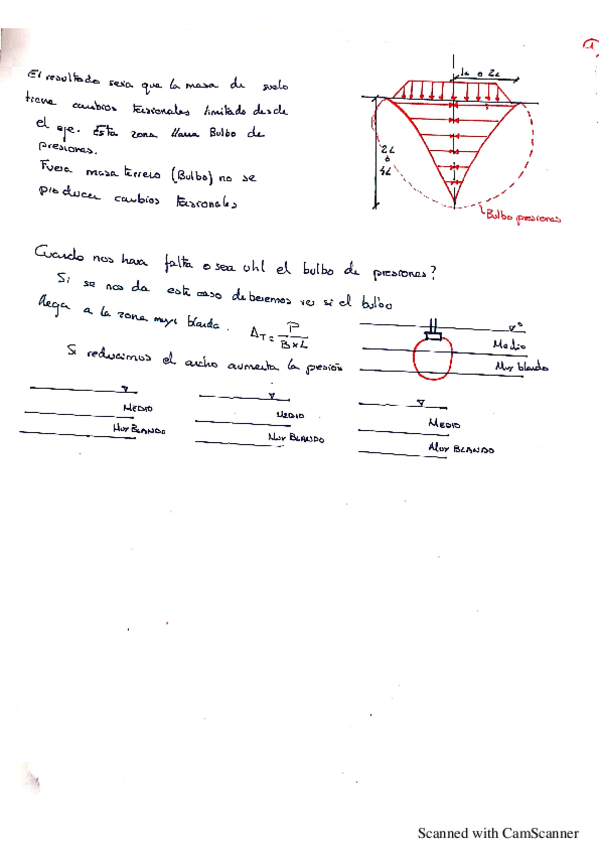 1
El resultado sera que la masa de suelo
tiene cambios tensionales limitado desde
el eje. Esta zona llama Bulbo de
presiones.
Fuera masa terreno (Bulbo) no se
producen cambios tensionales
1L o 2L
2L
o
4L
Bulbo presiones
Cuando nos hara falta o sea util el bulbo de presiones?
Si se nos da este caso deberemos ver si el bulbo
llega a la zona muy blanda. ΔT = P / B×L
Si reducimos el ancho aumenta la presión
Medio
Muy blando
MEDIO
MUY BLANDO
MEDIO
MUY BLANDO
MEDIO
MUY BLANDO
Scanned with CamScanner